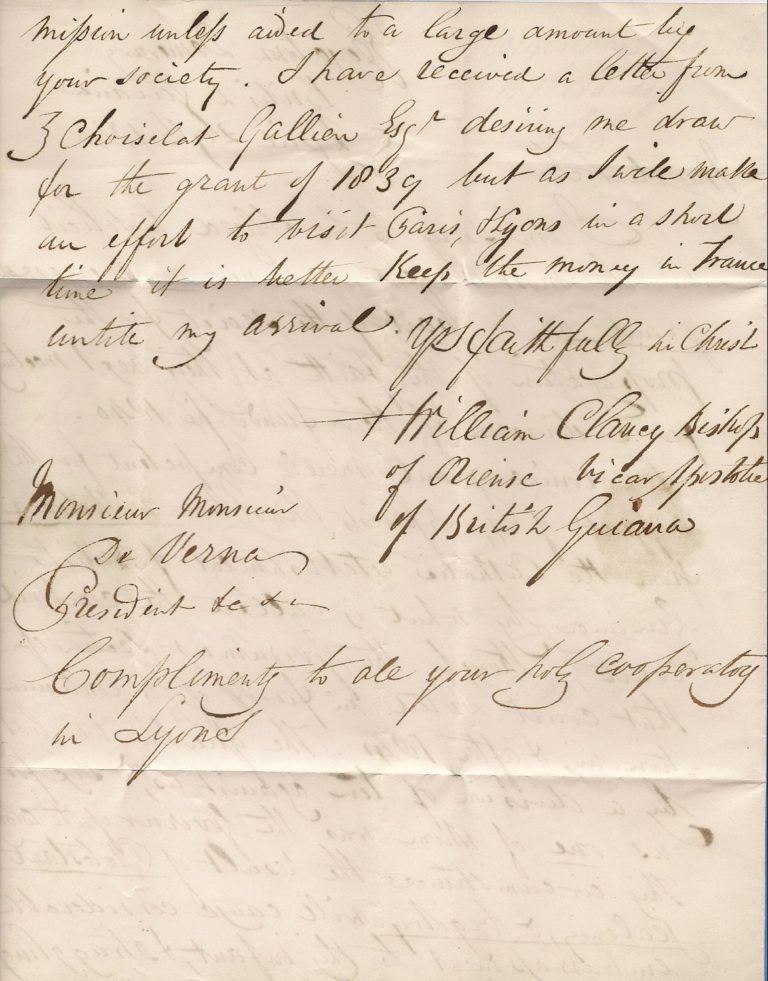 mission unless aided to a large amount by
your society. I have received a letter from
Choiselat Gallien Esqr desiring me draw
for the grant of 1839 but as I will make
an effort to visit Paris, & Lyons in a short
time it is better Keep the money in France
untile my arrival. Yrs faithfully in Christ
+ William Clancy Bishop
of Oriense Vicar Apostolic
of British Guiana
Monsieur Monsieur
De Verna
President &c &c
Compliments to all your holy cooperators
in Lyons